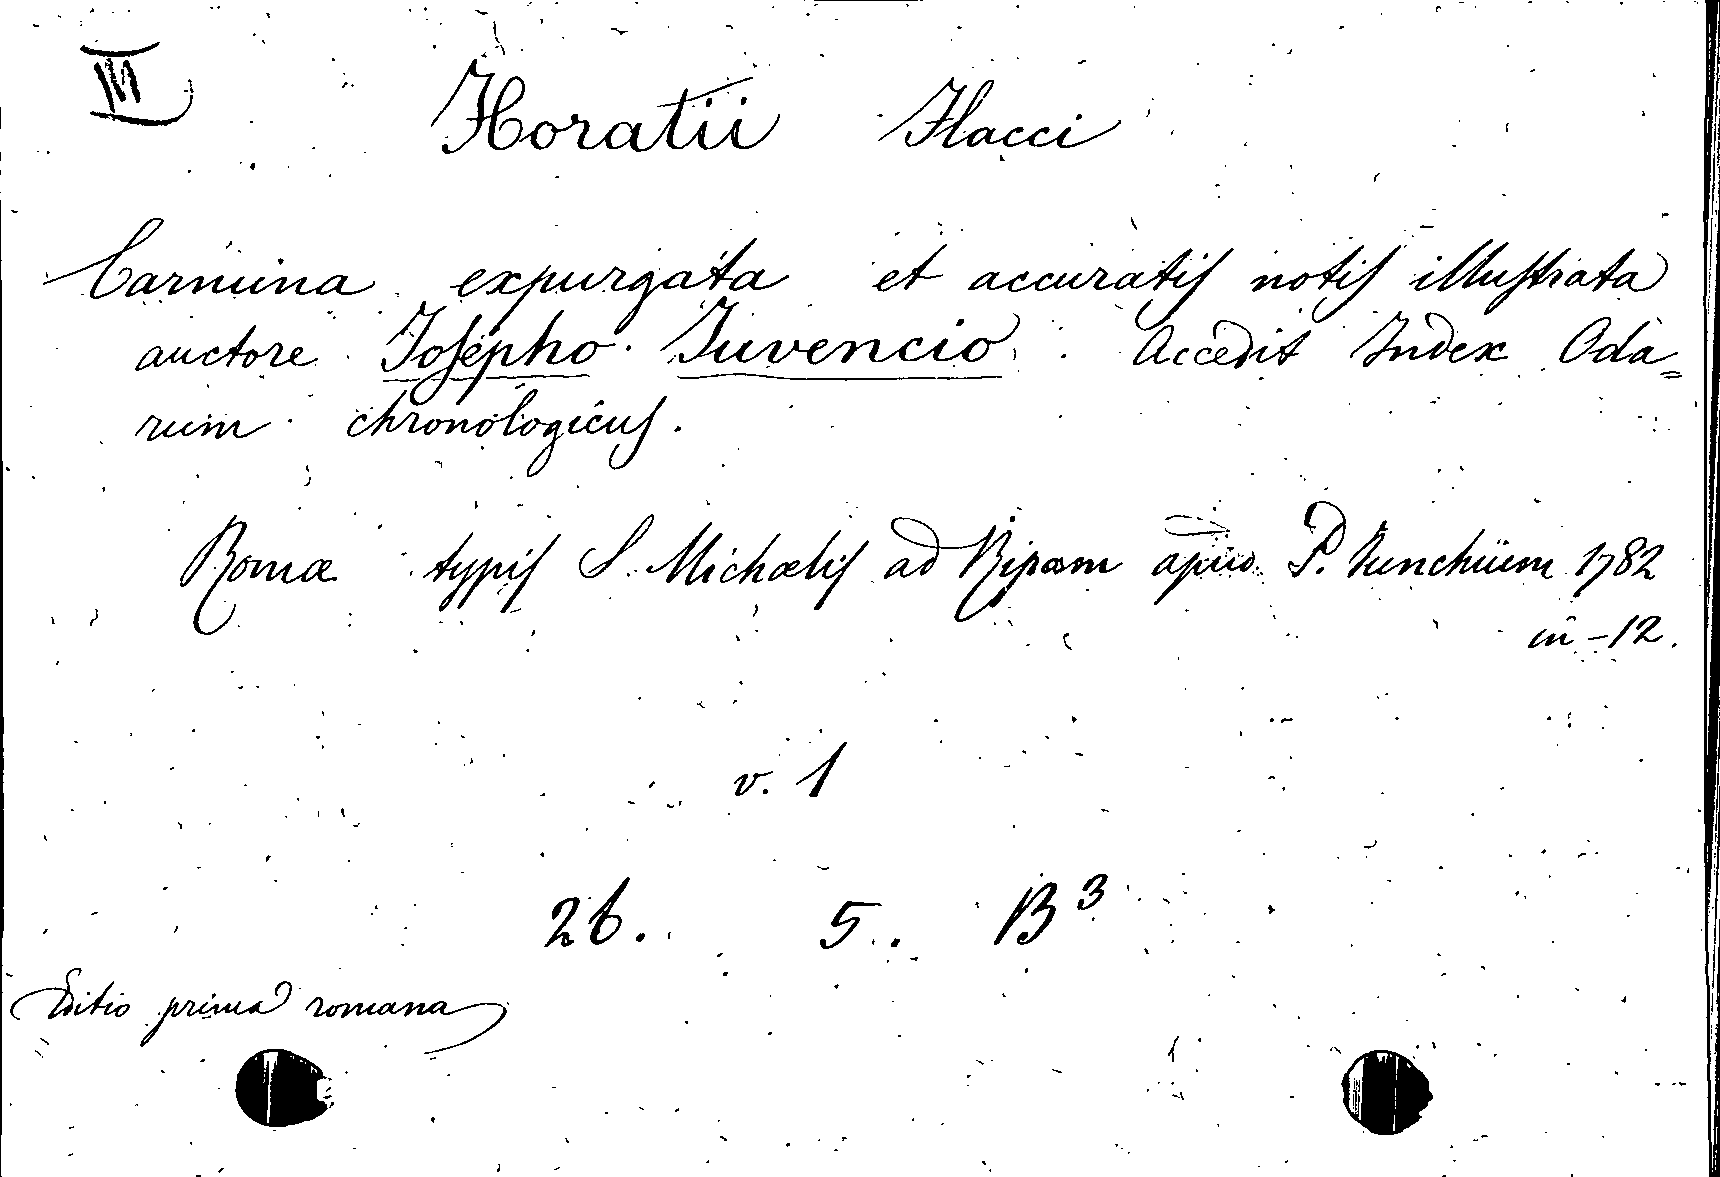 III
Horatii Flacci
Carmina expurgata et accuratis notis illustrata
auctore Josepho Juvencio. Accedit Index Oda=
rum chronologicus.
Romæ typis S. Michælis ad Ripam apud P. Junchium 1782
in-12.
v. 1
26. 5. B³
Editio prima romana